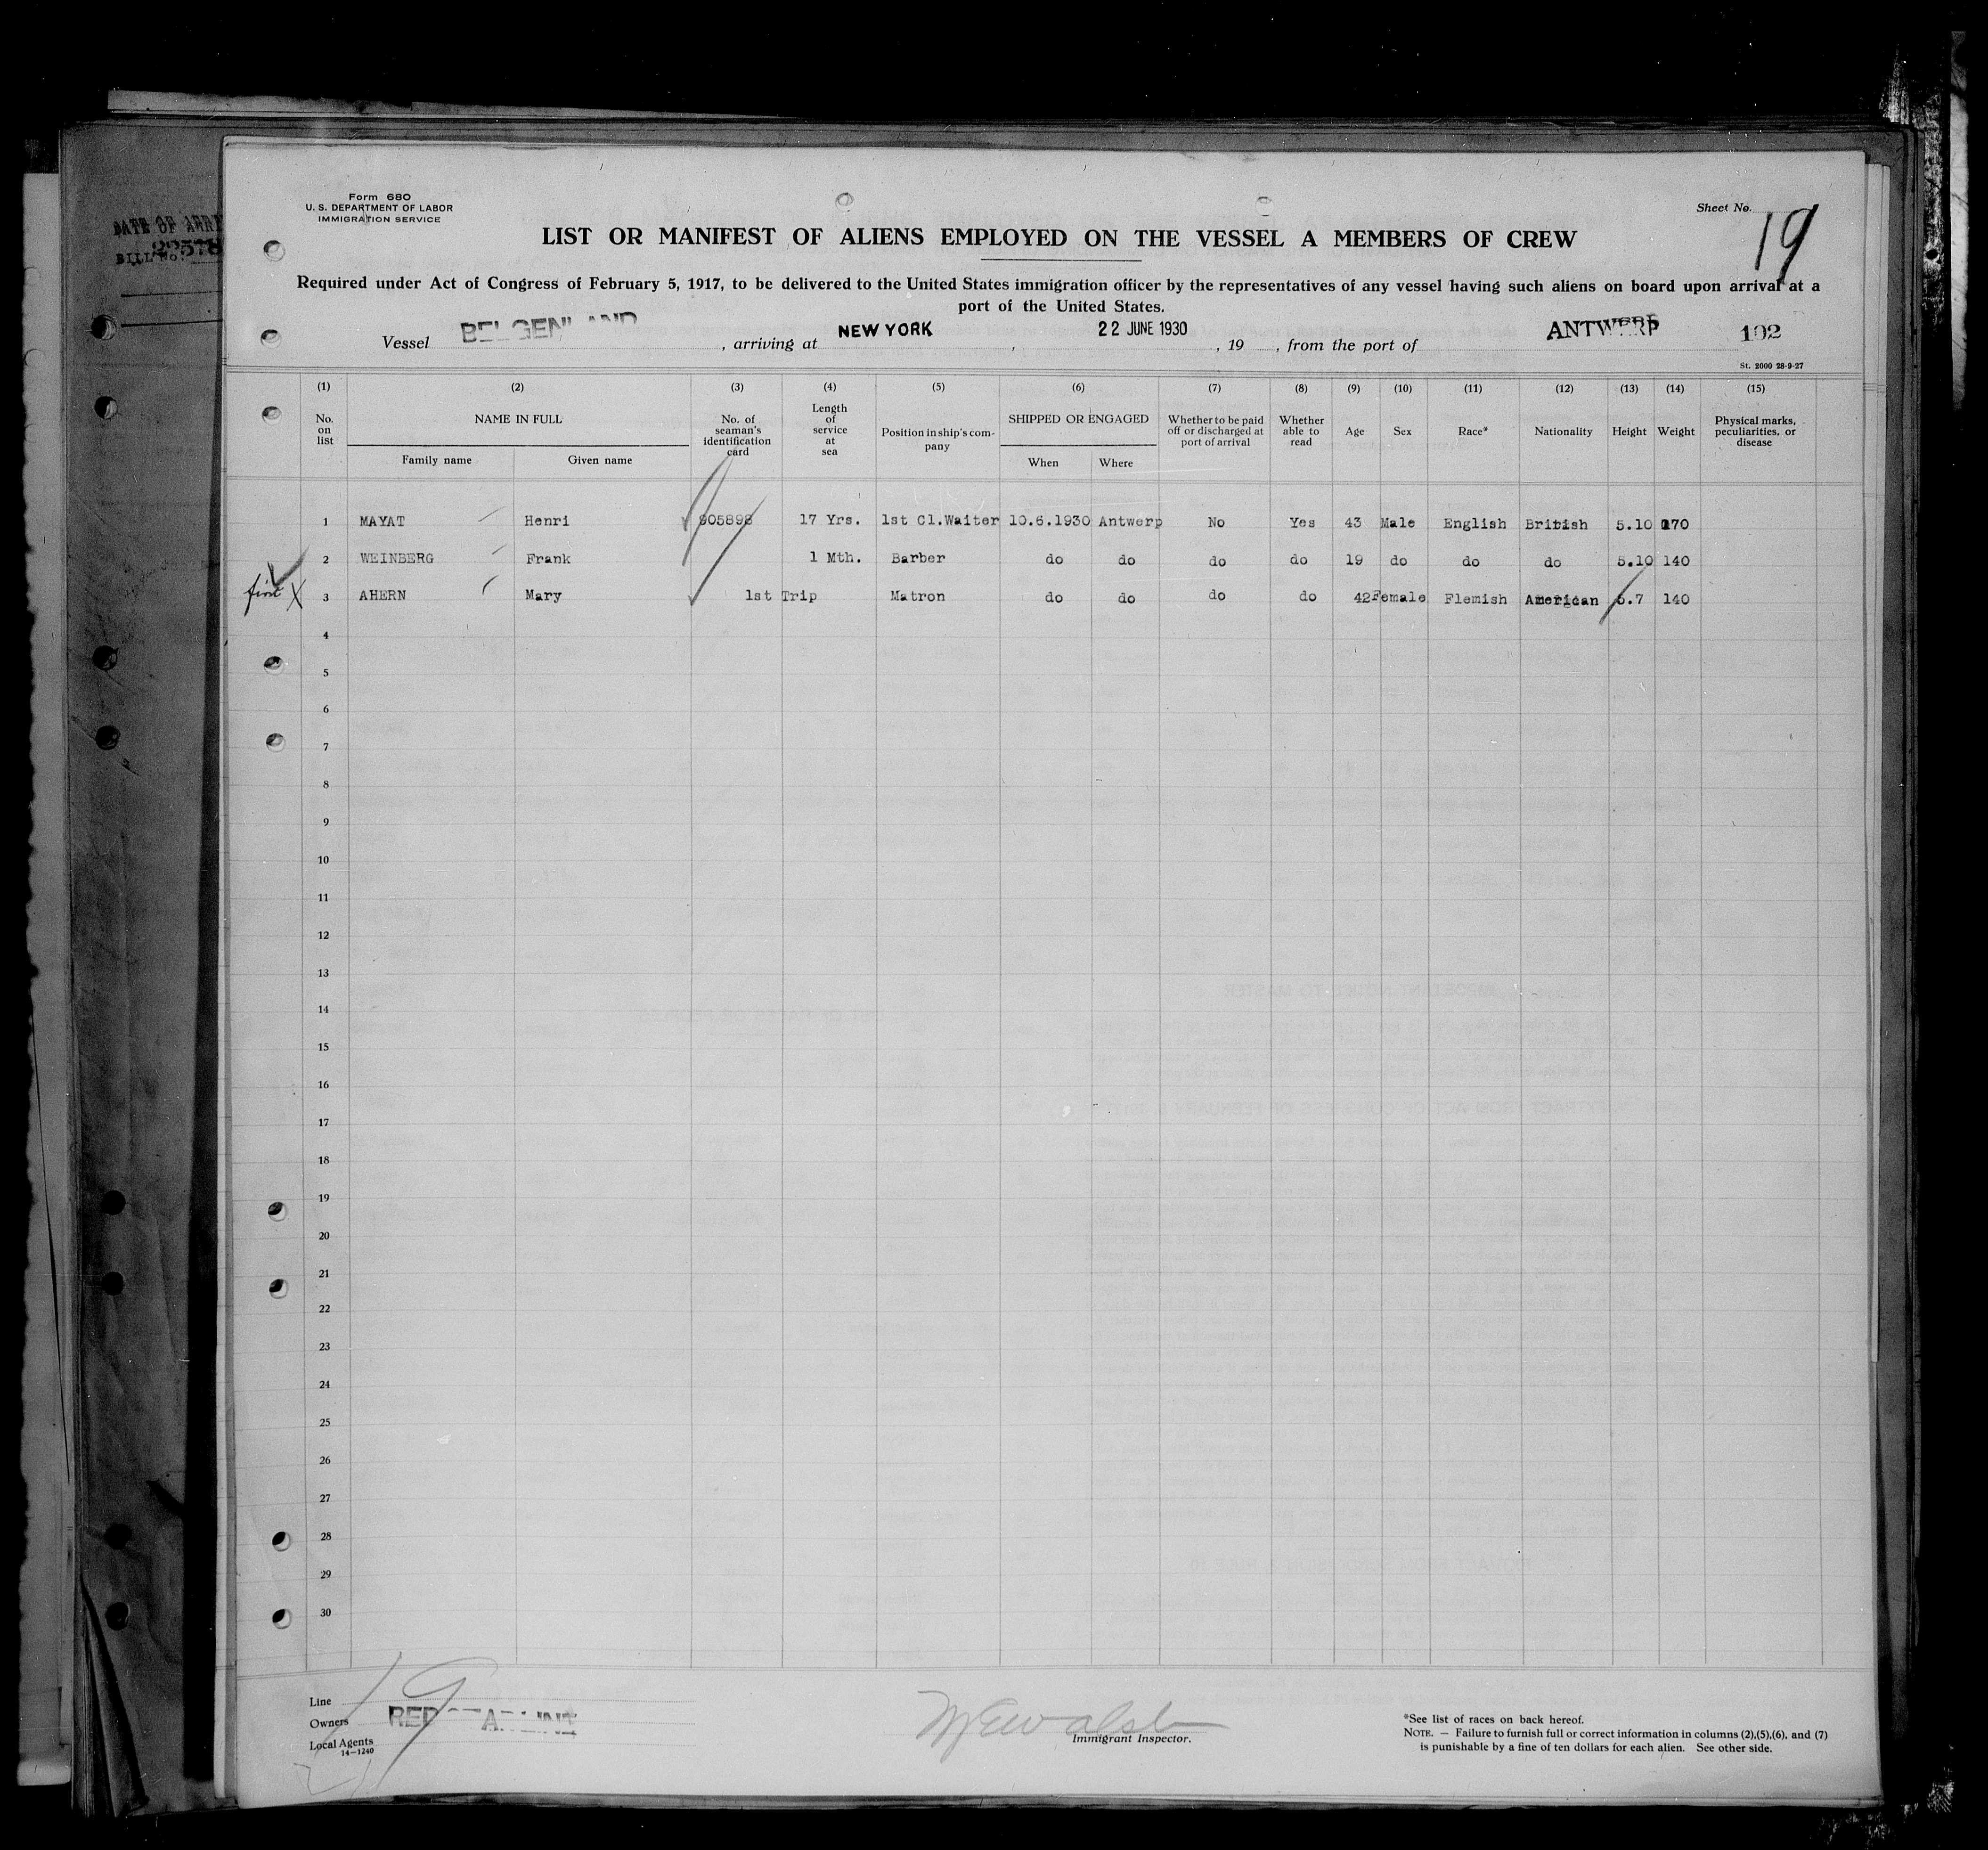 DATE OF ARRI
BILL No.
Form 680
U. S. DEPARTMENT OF LABOR
IMMIGRATION SERVICE
Sheet No. 19
LIST OR MANIFEST OF ALIENS EMPLOYED ON THE VESSEL A MEMBERS OF CREW
Required under Act of Congress of February 5, 1917, to be delivered to the United States immigration officer by the representatives of any vessel having such aliens on board upon arrival at a
port of the United States.
Vessel BELGENLAND, arriving at NEW YORK, 22 JUNE 1930, 19, from the port of ANTWERP 102
St. 2000 28-9-27
(1) (2) (3) (4) (5) (6) (7) (8) (9) (10) (11) (12) (13) (14) (15)
No. on list NAME IN FULL No. of seaman's identification card Length of service at sea Position in ship's company SHIPPED OR ENGAGED Whether to be paid off or discharged at port of arrival Whether able to read Age Sex Race* Nationality Height Weight Physical marks, peculiarities, or disease
Family name Given name When Where
1 MAYAT Henri 905898 17 Yrs. 1st Cl.Waiter 10.6.1930 Antwerp No Yes 43 Male English British 5.10 170
2 WEINBERG Frank 1 Mth. Barber do do do do 19 do do do 5.10 140
first X 3 AHERN Mary 1st Trip Matron do do do do 42 Female Flemish American 5.7 140
4
5
6
7
8
9
10
11
12
13
14
15
16
17
18
19
20
21
22
23
24
25
26
27
28
29
30
19
Line
Owners RED STAR LINE
Local Agents
14—1240
Immigrant Inspector.
*See list of races on back hereof.
NOTE. — Failure to furnish full or correct information in columns (2),(5),(6), and (7)
is punishable by a fine of ten dollars for each alien. See other side.